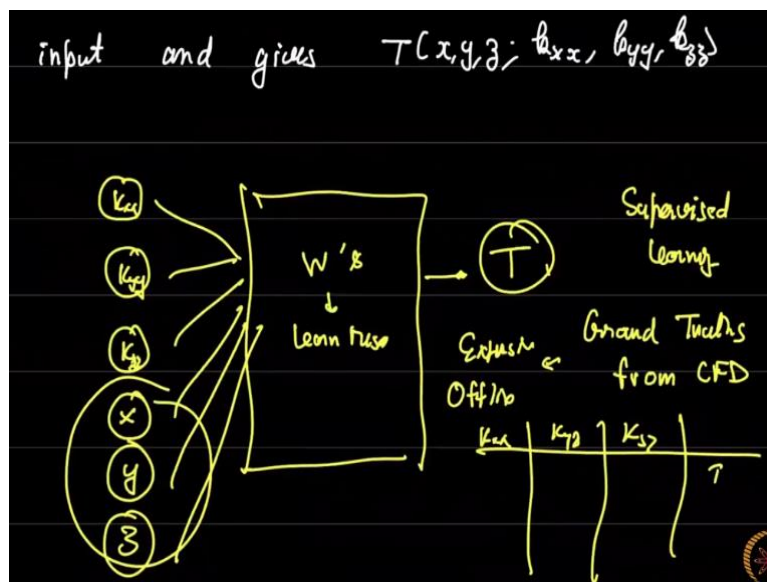 input and gives T(x,y,z; kxx, kyy, kzz)
kxx
kyy
kzz
x
y
z
W's
↓
Learn these
T
Supervised
Learning
Ground Truths
from CFD
Offline
kxx kyy kzz
T